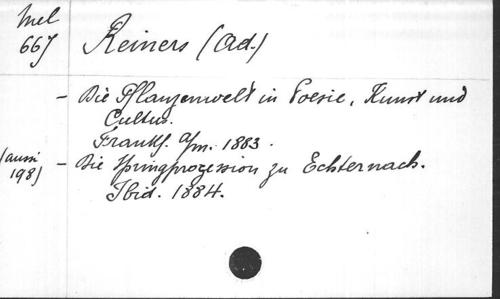 Mel
667
Reiners (Ad.)
- Die Pflanzenwelt in Poesie, Kunst und
Cultus.
Frankf. a/m. 1883.
(aussi
198)
- Die Springprozession zu Echternach.
Ibid. 1884.